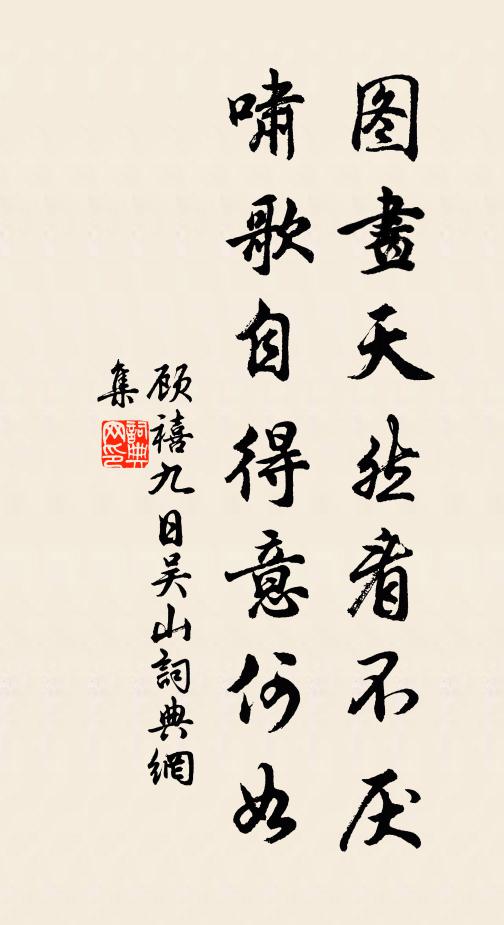 图畫天然看不厌
啸歌自得意何如
顾禧九日吴山詞典網
集
詞典网印